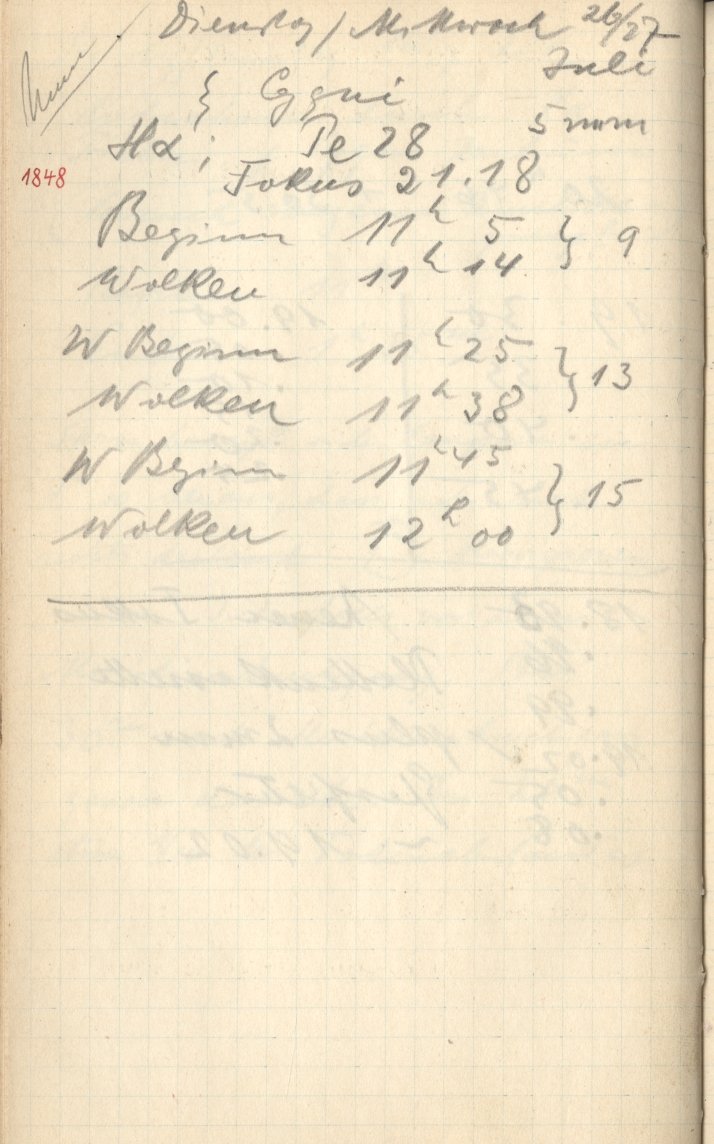 Dienstag / Mittwoch 26/27
Juli
ξ Cygni
5 mm
Hα; Pe 28
1848
Fokus 21.18
Beginn 11h 5 } 9
Wolken 11h 14
W Beginn 11h 25 } 13
Wolken 11h 38
W Beginn 11h 45 } 15
Wolken 12h 00